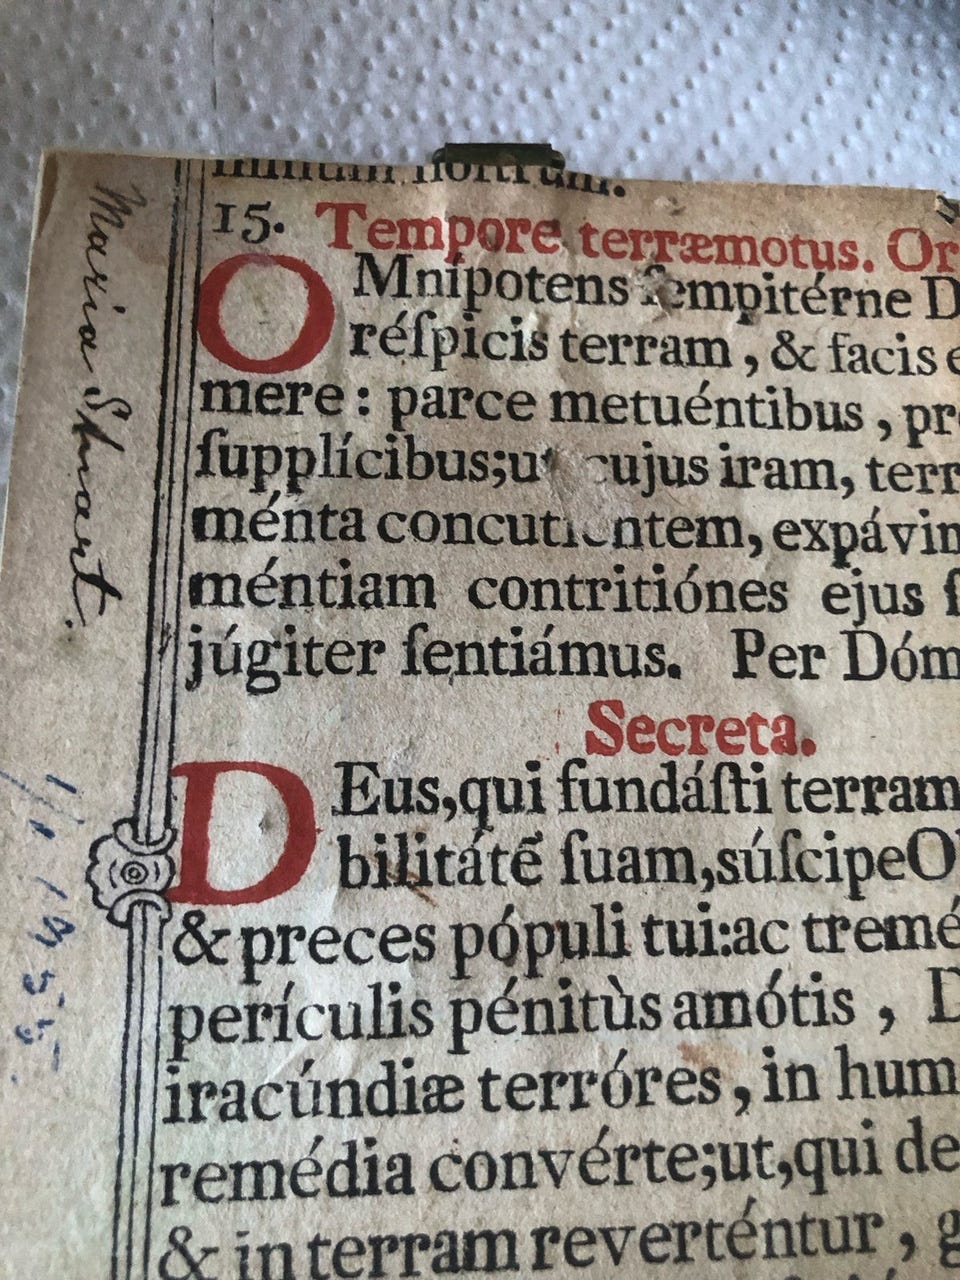 15. Tempore terræmotus. Or
OMnípotens ſempitérne D
réſpicis terram, & facis e
mere: parce metuéntibus, pr
ſupplícibus; ut cujus iram, terr
ménta concutientem, expávim
méntiam contritiónes ejus ſ
júgiter ſentiámus. Per Dóm
Secreta.
DEus, qui fundáſti terram
bilitátē ſuam, súſcipe O
& preces pópuli tui: ac tremé
perículis pénitùs amótis, D
iracúndiæ terróres, in hum
remédia convérte; ut, qui de
& in terram reverténtur, g
Maria Stuart.